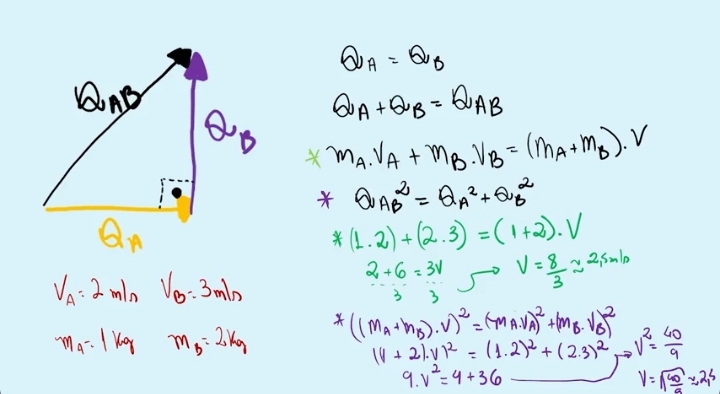 Q_AB
Q_B
Q_A
V_A = 2 m/s V_B = 3 m/s
m_A = 1 kg m_B = 2 kg
Q_A = Q_B
Q_A + Q_B = Q_AB
* m_A.V_A + m_B.V_B = (m_A + m_B).V
* Q_AB² = Q_A² + Q_B²
* (1.2) + (2.3) = (1+2).V
2 + 6 = 3V
3 3
V = 8/3 ≈ 2,5 m/s
* ((m_A + m_B).V)² = (m_A.V_A)² + (m_B.V_B)²
(1 + 2).V)² = (1.2)² + (2.3)²
V² = 40/9
9.V² = 4 + 36
V = √40/9 ≈ 2,5